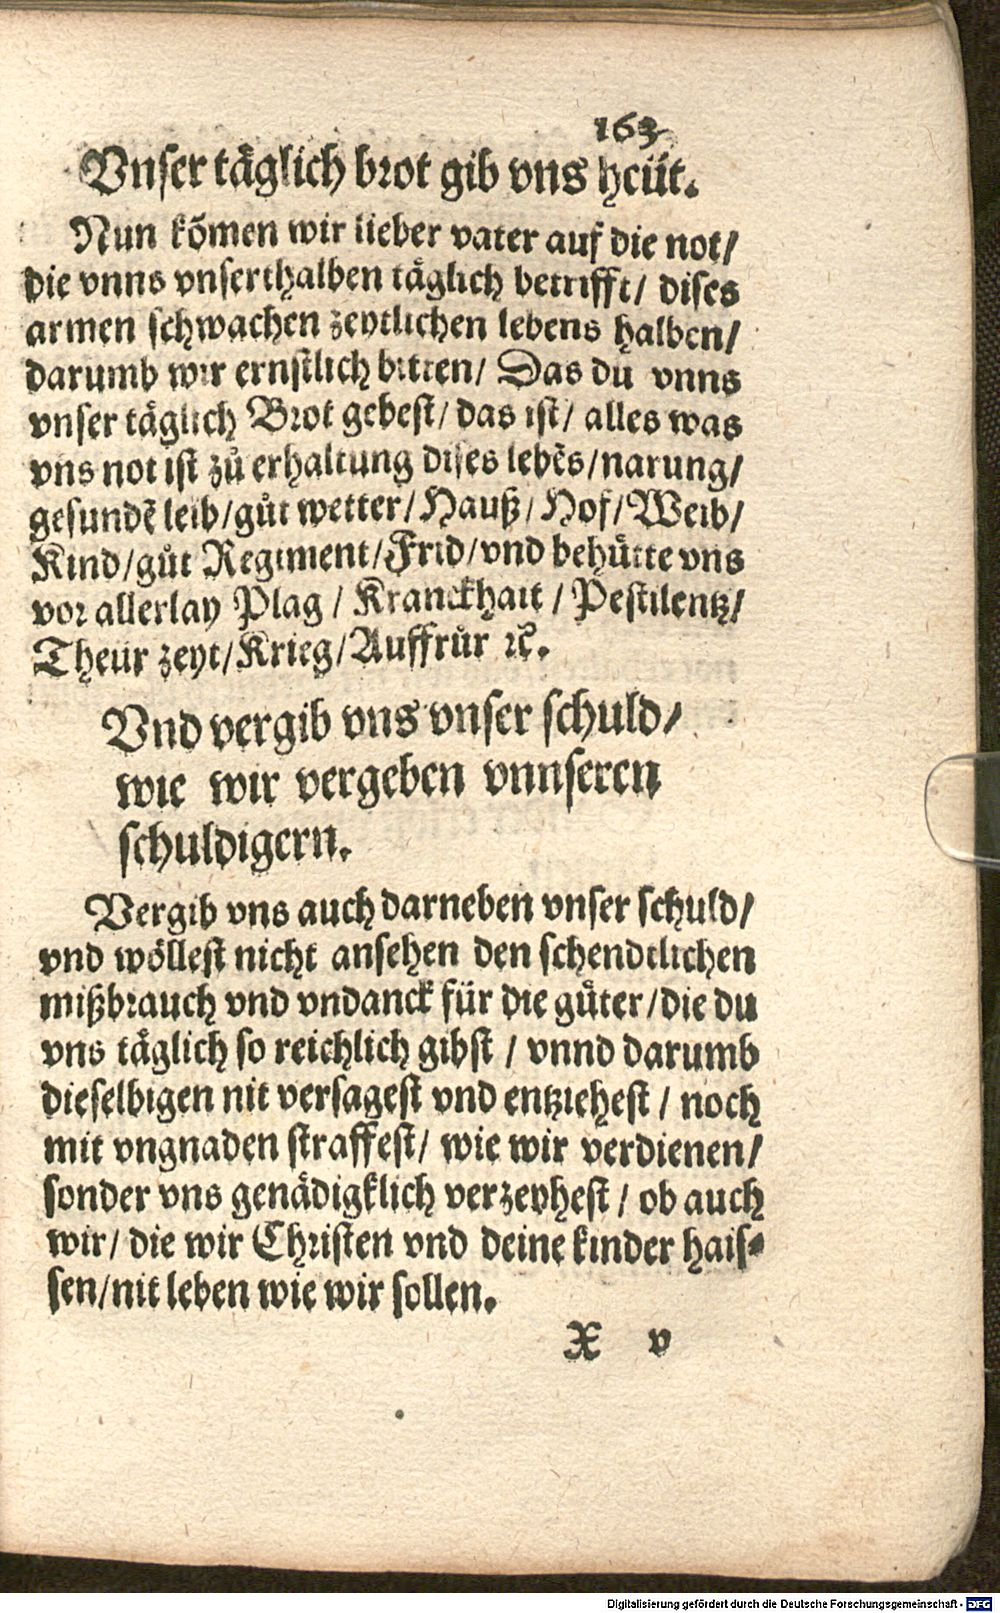 163
Vnser täglich brot gib vns heüt.
Nun kõmen wir lieber vater auf die not/
die vnns vnserthalben täglich betrifft/ dises
armen schwachen zeytlichen lebens halben/
darumb wir ernstlich bitten/ Das du vnns
vnser täglich Brot gebest/ das ist/ alles was
vns not ist zů erhaltung dises lebẽs/narung/
gesundẽ leib/gůt wetter/Hauß/Hof/Weib/
Kind/gůt Regiment/Frid/vnd behütte vns
vor allerlay Plag / Kranckhait / Pestilentz/
Theür zeyt/Krieg/Auffrůr ꝛc̃.
Vnd vergib vns vnser schuld/
wie wir vergeben vnnseren
schuldigern.
Vergib vns auch darneben vnser schuld/
vnd wöllest nicht ansehen den schendtlichen
mißbrauch vnd vndanck für die güter/die du
vns täglich so reichlich gibst / vnnd darumb
dieselbigen nit versagest vnd entziehest / noch
mit vngnaden straffest/ wie wir verdienen/
sonder vns genädigklich verzeyhest / ob auch
wir/ die wir Christen vnd deine kinder hais⸗
sen/nit leben wie wir sollen.
X v
Digitalisierung gefördert durch die Deutsche Forschungsgemeinschaft - DFG